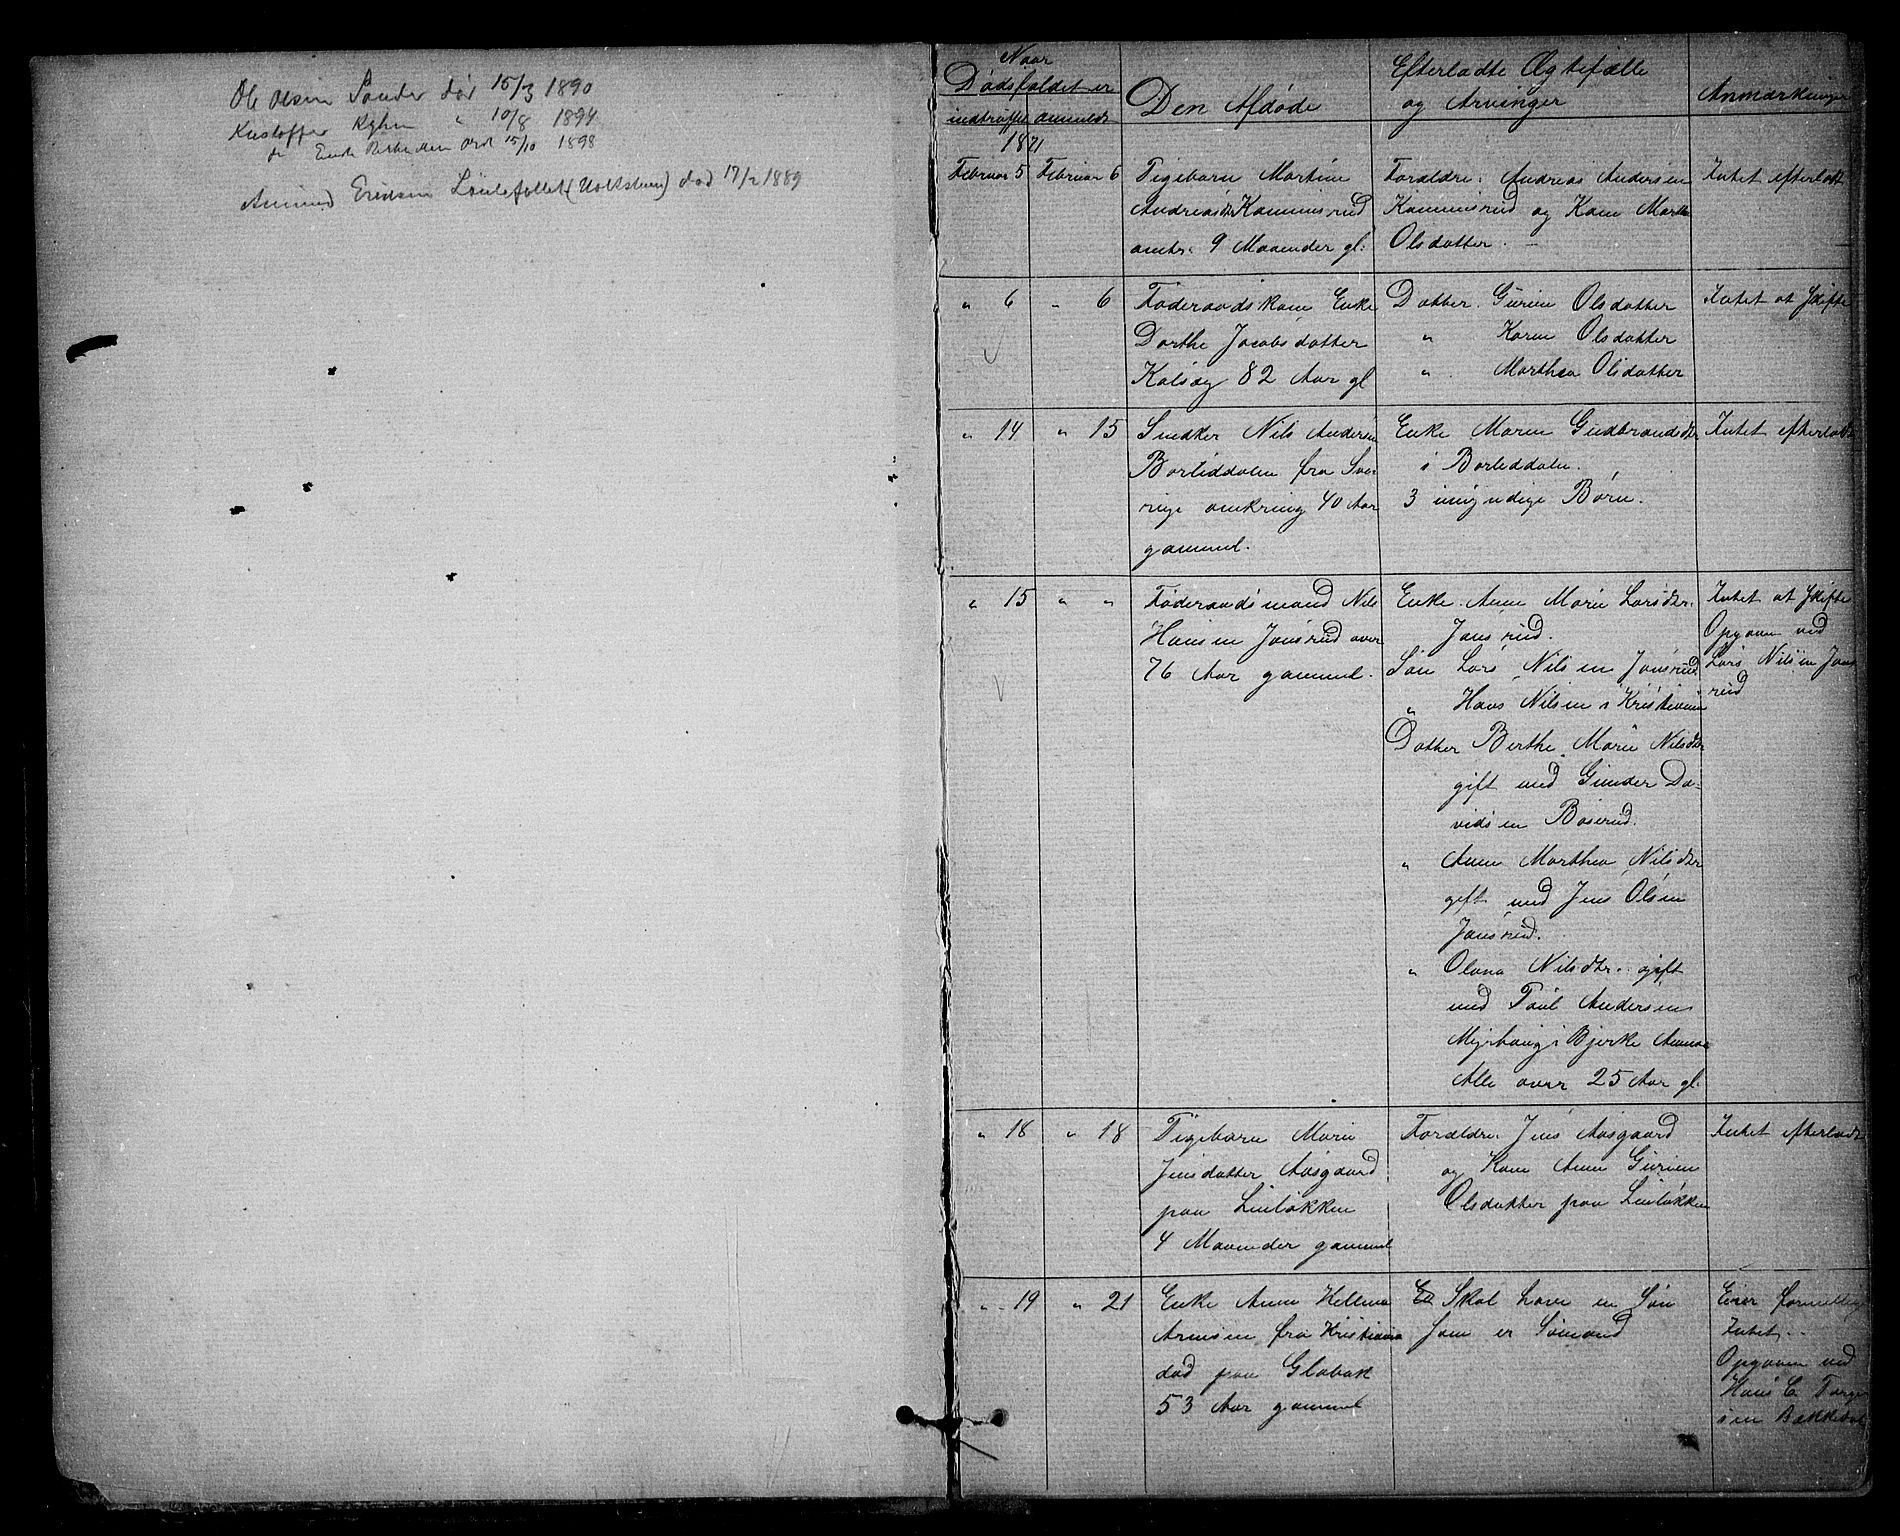 Ole Olsen Sander dør 15/3 1890
Kristoffer " 10/8 1894
do Enke død 15/10 1898
Amund Eriksen død 17/2 1889
Naar
Dødsfaldet er
indtruffet anmeldt
Den Afdøde
Efterladte Ægtefælle
og Arvinger
Anmærkninger
1871
Februar 5 Februar 6 Pigebarn Martine Forældre: Andreas Andersen Intet efterladt
Andreasdtr Kammesrud Kammesrud og Kone Marthe
omtr. 9 Maaneder gl: Olsdatter. —
" 6 " 6 Føderaadskone Enke Datter. Gurine Olsdatter Intet at Skifte
Dorthe Jacobsdatter " Karen Olsdatter
Kalsøg 82 Aar gl " Marthea Olsdatter
" 14 " 15 Snedker Nils Andersen Enke Maren Gudbrandsdtr Intet efterladt
Borliddalen fra Sve- i Borliddalen.
rige omkring 40 Aar 3 umyndige Børn.
gammel.
" 15 " " Føderaadsmand Nils Enke. Anne Marie Larsdtr. Intet at Skifte
Hansen Jonsrud over Jonsrud. Opgaven ved
76 Aar gammel. Søn Lars Nilsen Jonsrud Lars Nilsen Jons
" Hans Nilsen i Kristiania rud
Datter Berthe Marie Nilsdtr
gift med Gunder Da-
vidsen Baserud.
" Anne Marthea Nilsdtr
gift med Jens Olsen
Jonsrud.
" Olava Nilsdtr. gift
med Paul Andersen
Myrhaug i Bjerke Annex
Alle over 25 Aar gl.
" 18 " 18 Pigebarn Marie Forældre. Jens Aasgaard Intet efterladt
Jensdatter Aasgaard og Kone Anne Gurine
paa Linløkken Olsdatter paa Linløkken
4 Maaneder gammel
" 19 " 21 Enke Anne Hellene Skal have en Søn Eier formentlig
Arnesen fra Kristiania som er Sømand Intet.
død paa Globak Opgaven ved
53 Aar gammel Hans C. Torger
sen Bakkedal